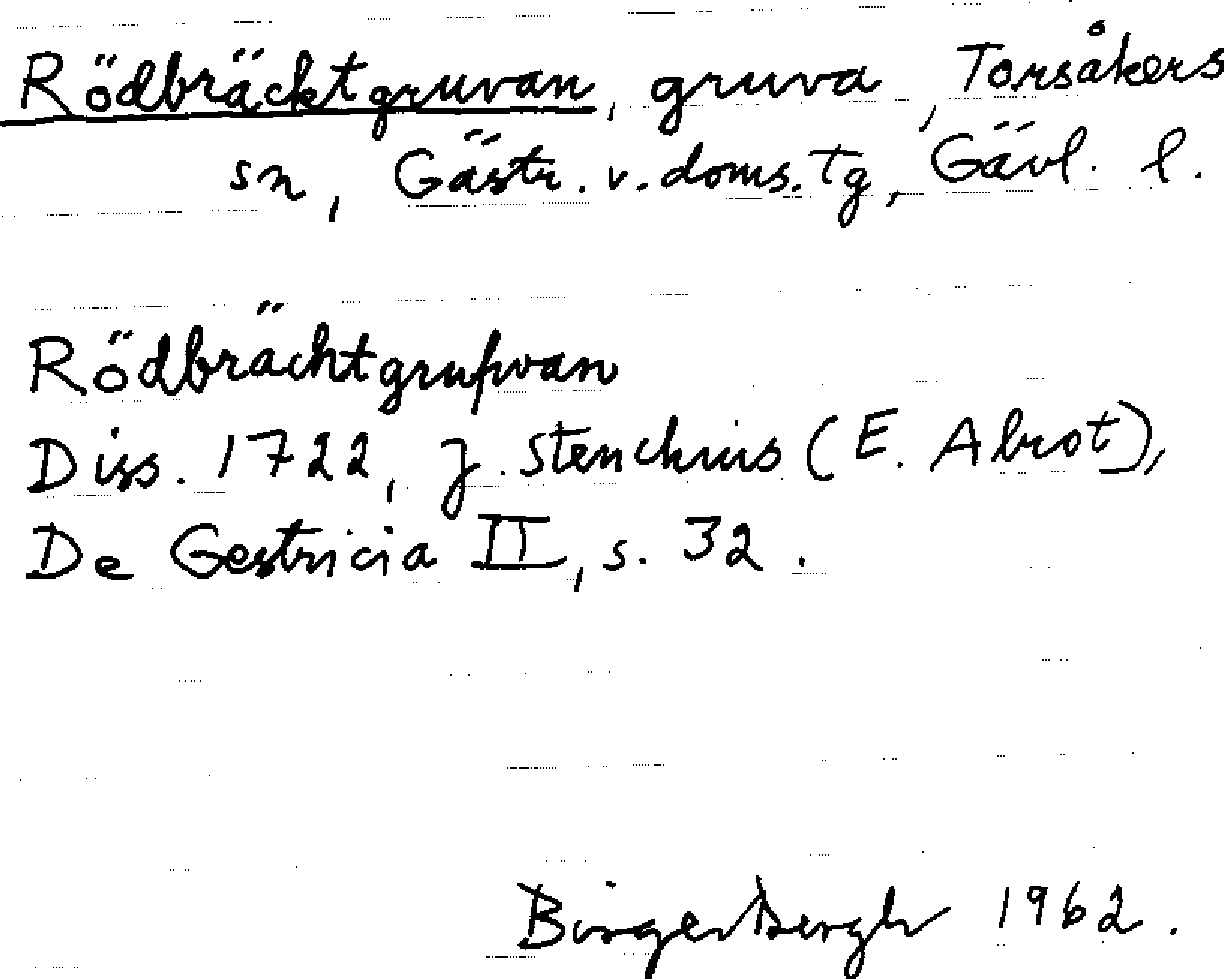 Rödbräcktgruvan, gruva, Torsåkers
sn, Gästr. v. doms. tg, Gävl. l.
Rödbrächtgrufvan
Diss. 1722, J. Stenchius (E. Abrot),
De Gestricia II, s. 32.
Birger Bergh 1962.